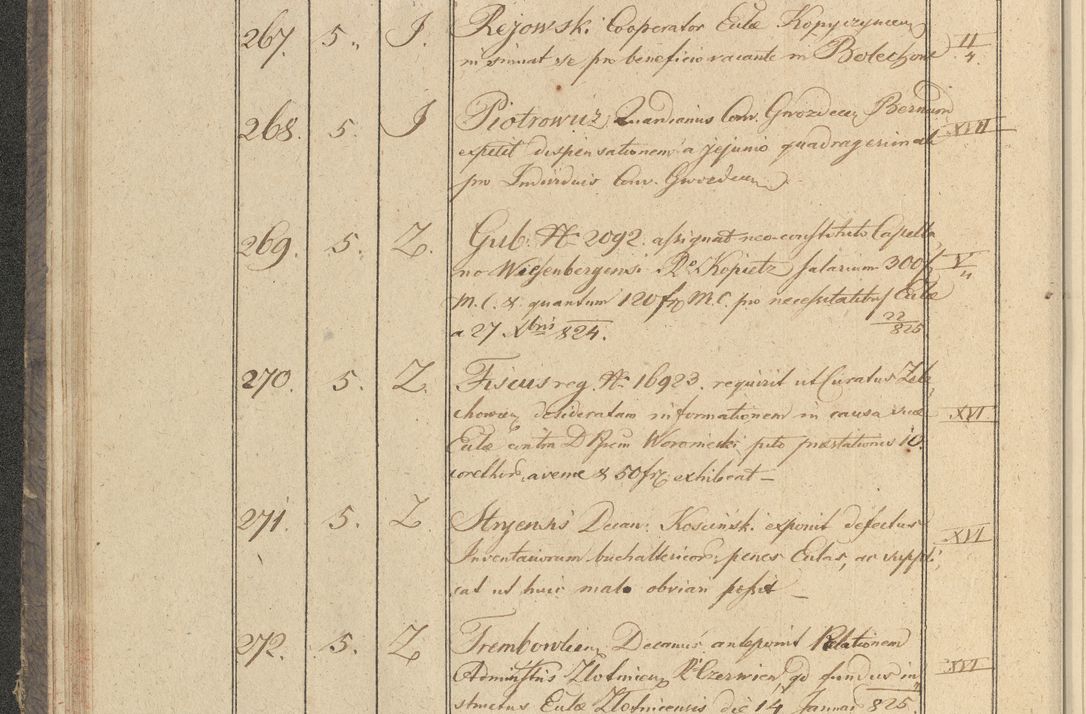 267. 5. J. Rejowski Cooperator Ecclae Kopyczyncen
insinuat se pro beneficio vacante in Bolechow II/4.
268. 5. J Piotrowicz Quardianus Conv. Gwozdecen Bernard
expetit dispensationem a jejunio quadragesimali XVII
pro Individuis Conv. Gwozdecen
269. 5. Z. Gub. N 2092. assignat neo-constituto Capella
no Wiesenbergensi Rdo Kopietz salarium 300 f V/11
M.C. & quantum 120 fr M.C. pro necessitatibus Ecclae
a 27 Xbris 824. 22/825
270. 5. Z. Fiscus reg. N 16923. requirit ut Curatus Zele
chowcen desideratam informationem in causa XVI
Ecclae contra D Woroniecki pcto praestationis 10.
corethor. avenae & 50 fr. exhibeat –
271. 5. Z. Stryensis Decan. Kosciński exponit defectus
Inventariorum buchaltericor. penes Eccles, ac suppli XVI
cat ut huic malo obviari possit –
272. 5. Z Trembowlien Decanus anteponit Relationem
Administris Zlotnicen R. Czerwien qd fundus in XVI
structus Ecclae Zlotnicensis die 14 Januar 825.